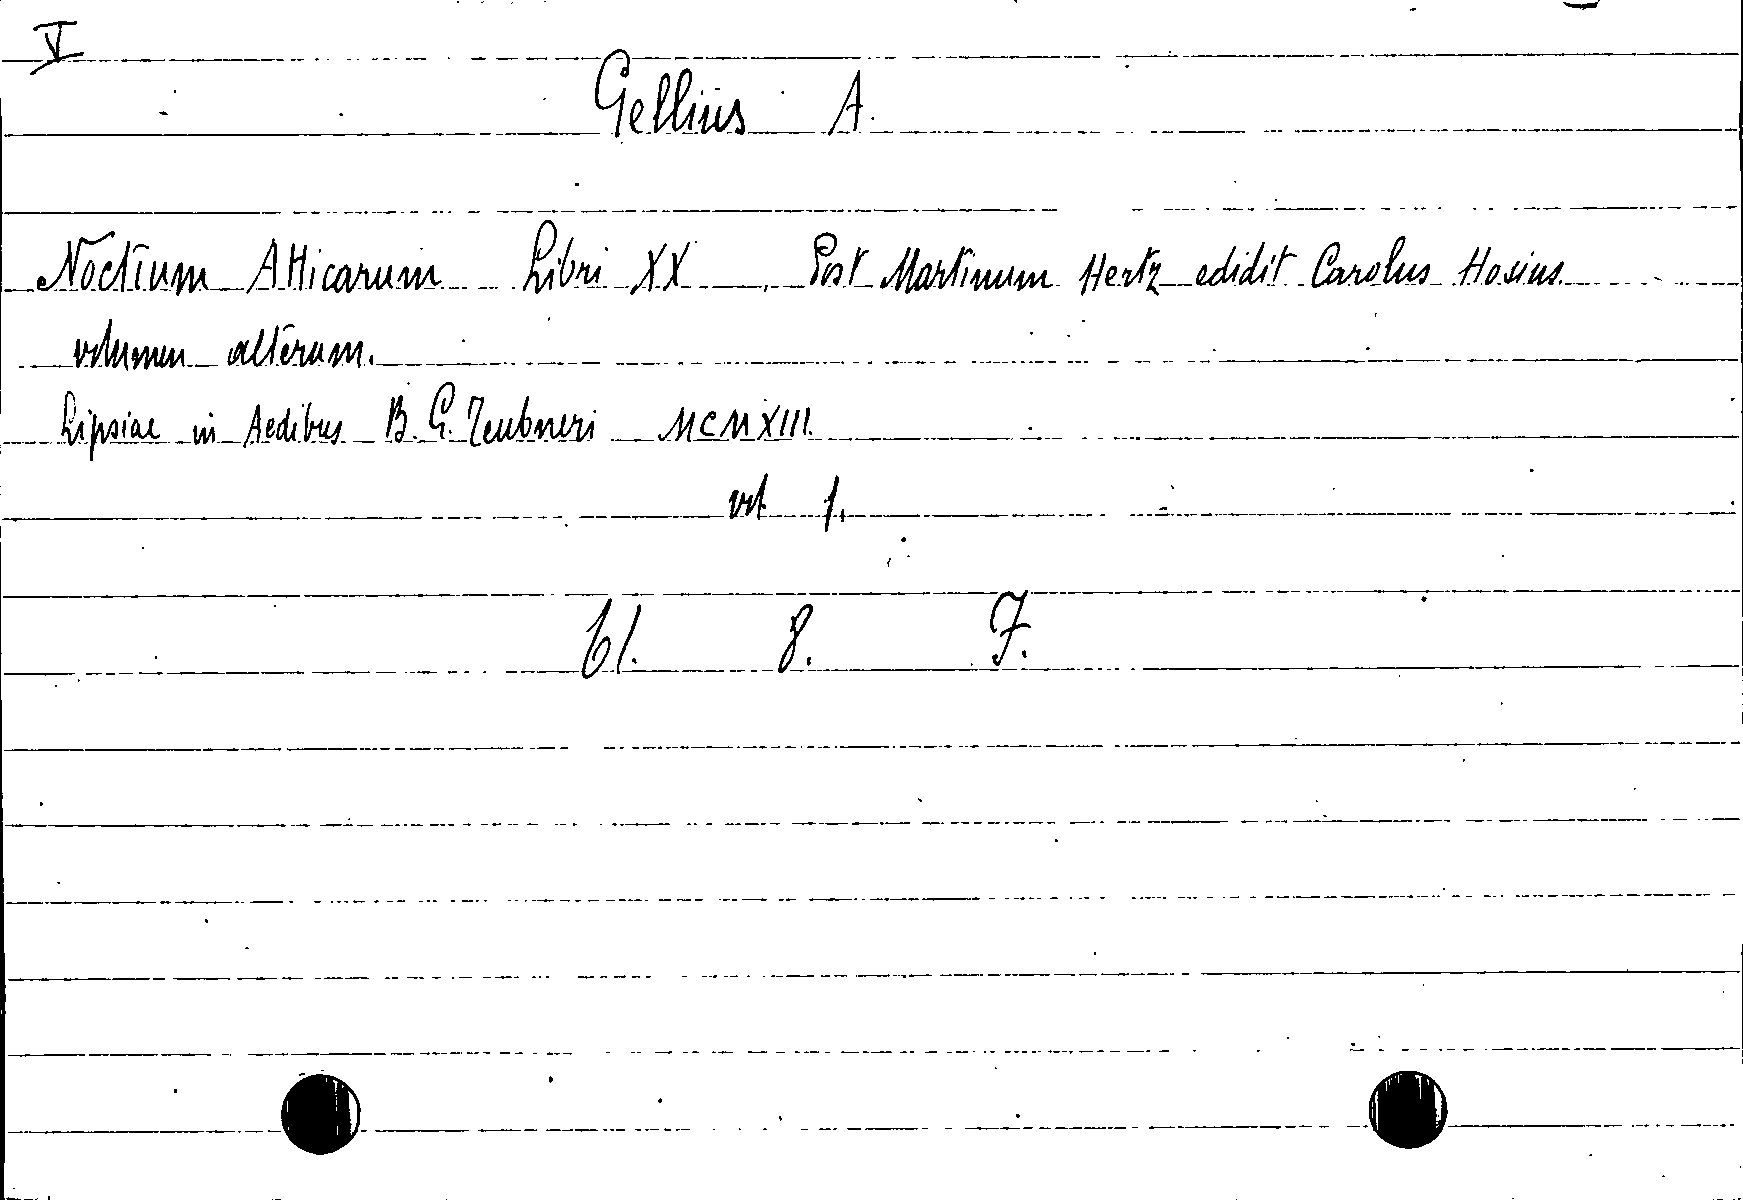 V
Gellius A.
Noctium Atticarum Libri XX. Post Martinum Hertz edidit Carolus Hosius.
volumen alterum.
Lipsiae in Aedibus B. G. Teubneri MCMXIII.
vol 1.
61. 8. F.